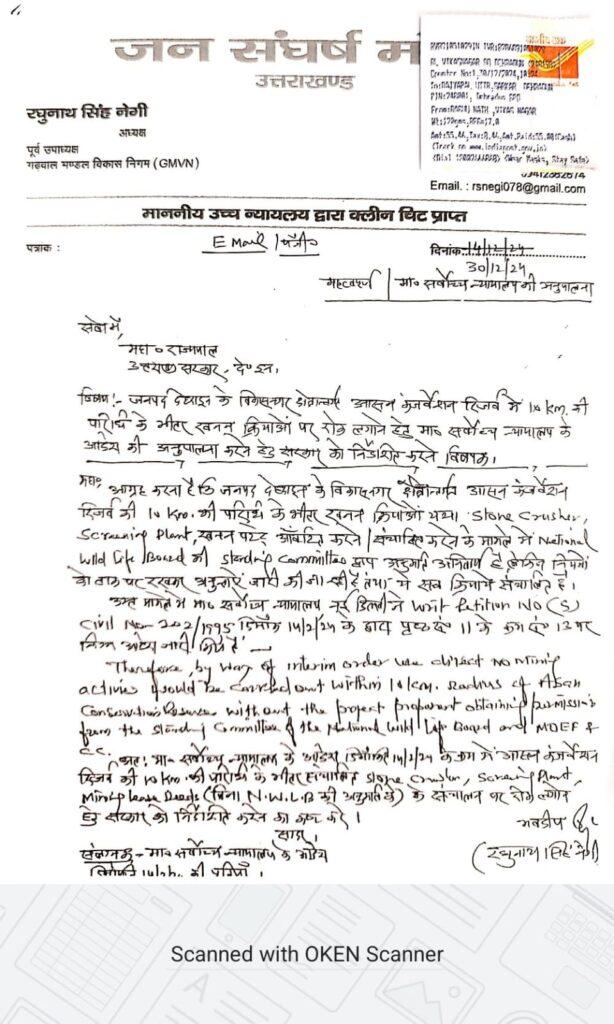 जन संघर्ष मो
उत्तराखण्ड
रघुनाथ सिंह नेगी
अध्यक्ष
पूर्व उपाध्यक्ष
गढ़वाल मण्डल विकास निगम (GMVN)
Email. : rsnegi078@gmail.com
माननीय उच्च न्यायलय द्वारा क्लीन चिट प्राप्त
पत्राक :
Email/पंजी०
दिनांक 14/12/24
30/12/24
महत्वपूर्ण / मा० सर्वोच्च न्यायालय की अनुपालना
सेवा में,
महा० राज्यपाल
उत्तराखण्ड सरकार, दे०दून.
विषय:- जनपद देहरादून के विकासनगर क्षेत्रान्तर्गत आसन कंजर्वेशन रिजर्व में 10 km. की
परिधि के भीतर खनन क्रियाओं पर रोक लगाने हेतु मा० सर्वोच्च न्यायालय के
आदेश की अनुपालना करने हेतु सरकार को निर्देशित करने विषयक.
महो०
आग्रह करना है कि जनपद देहरादून के विकासनगर क्षेत्रान्तर्गत आसन कंजर्वेशन
रिजर्व की 10 km. की परिधि के भीतर खनन क्रियाओं यथा Stone Crusher,
Screening Plant, खनन पट्टे आवंटित करने / संचालित करने के मामले में National
Wild Life Board की Standing Committee द्वारा अनुमति अनिवार्य है, लेकिन नियमों
को ताक पर रखकर अनुज्ञाएं जारी की जा रही है तथा ये सब क्रियायें संचालित है।
उक्त मामले में मा० सर्वोच्च न्यायालय नई दिल्ली ने Writ Petition NO (S)
Civil No- 202/1995 दिनांक 14/2/24 के द्वारा पृष्ठ सं० 11 के क्रम सं० 13 पर
निम्न आदेश जारी किये हैं —
Therefore, by way of interim order we direct no mining
activies would be carried out within 10 km. radius of Asan
Conservation Reserve without the project proponent obtaining permission
from the Standing Committee of the National Wild Life Board and MOEF &
CC.
अतः मा० सर्वोच्च न्यायालय के आदेश दिनांक 14/2/24 के क्रम में आसन कंजर्वेशन
रिजर्व की 10 km. की परिधि के भीतर संचालित Stone Crusher, Screening Plant,
Mining Lease Deeds (बिना N.W.L.B की अनुमति के) के संचालन पर रोक लगाने
हेतु सरकार को निर्देशित करने का कष्ट करें।
सादर।
भवदीय
(रघुनाथ सिंह नेगी)
संलग्नक- मा० सर्वोच्च न्यायालय के आदेश
दिनांक 14/2/ की प्रति।
Scanned with OKEN Scanner